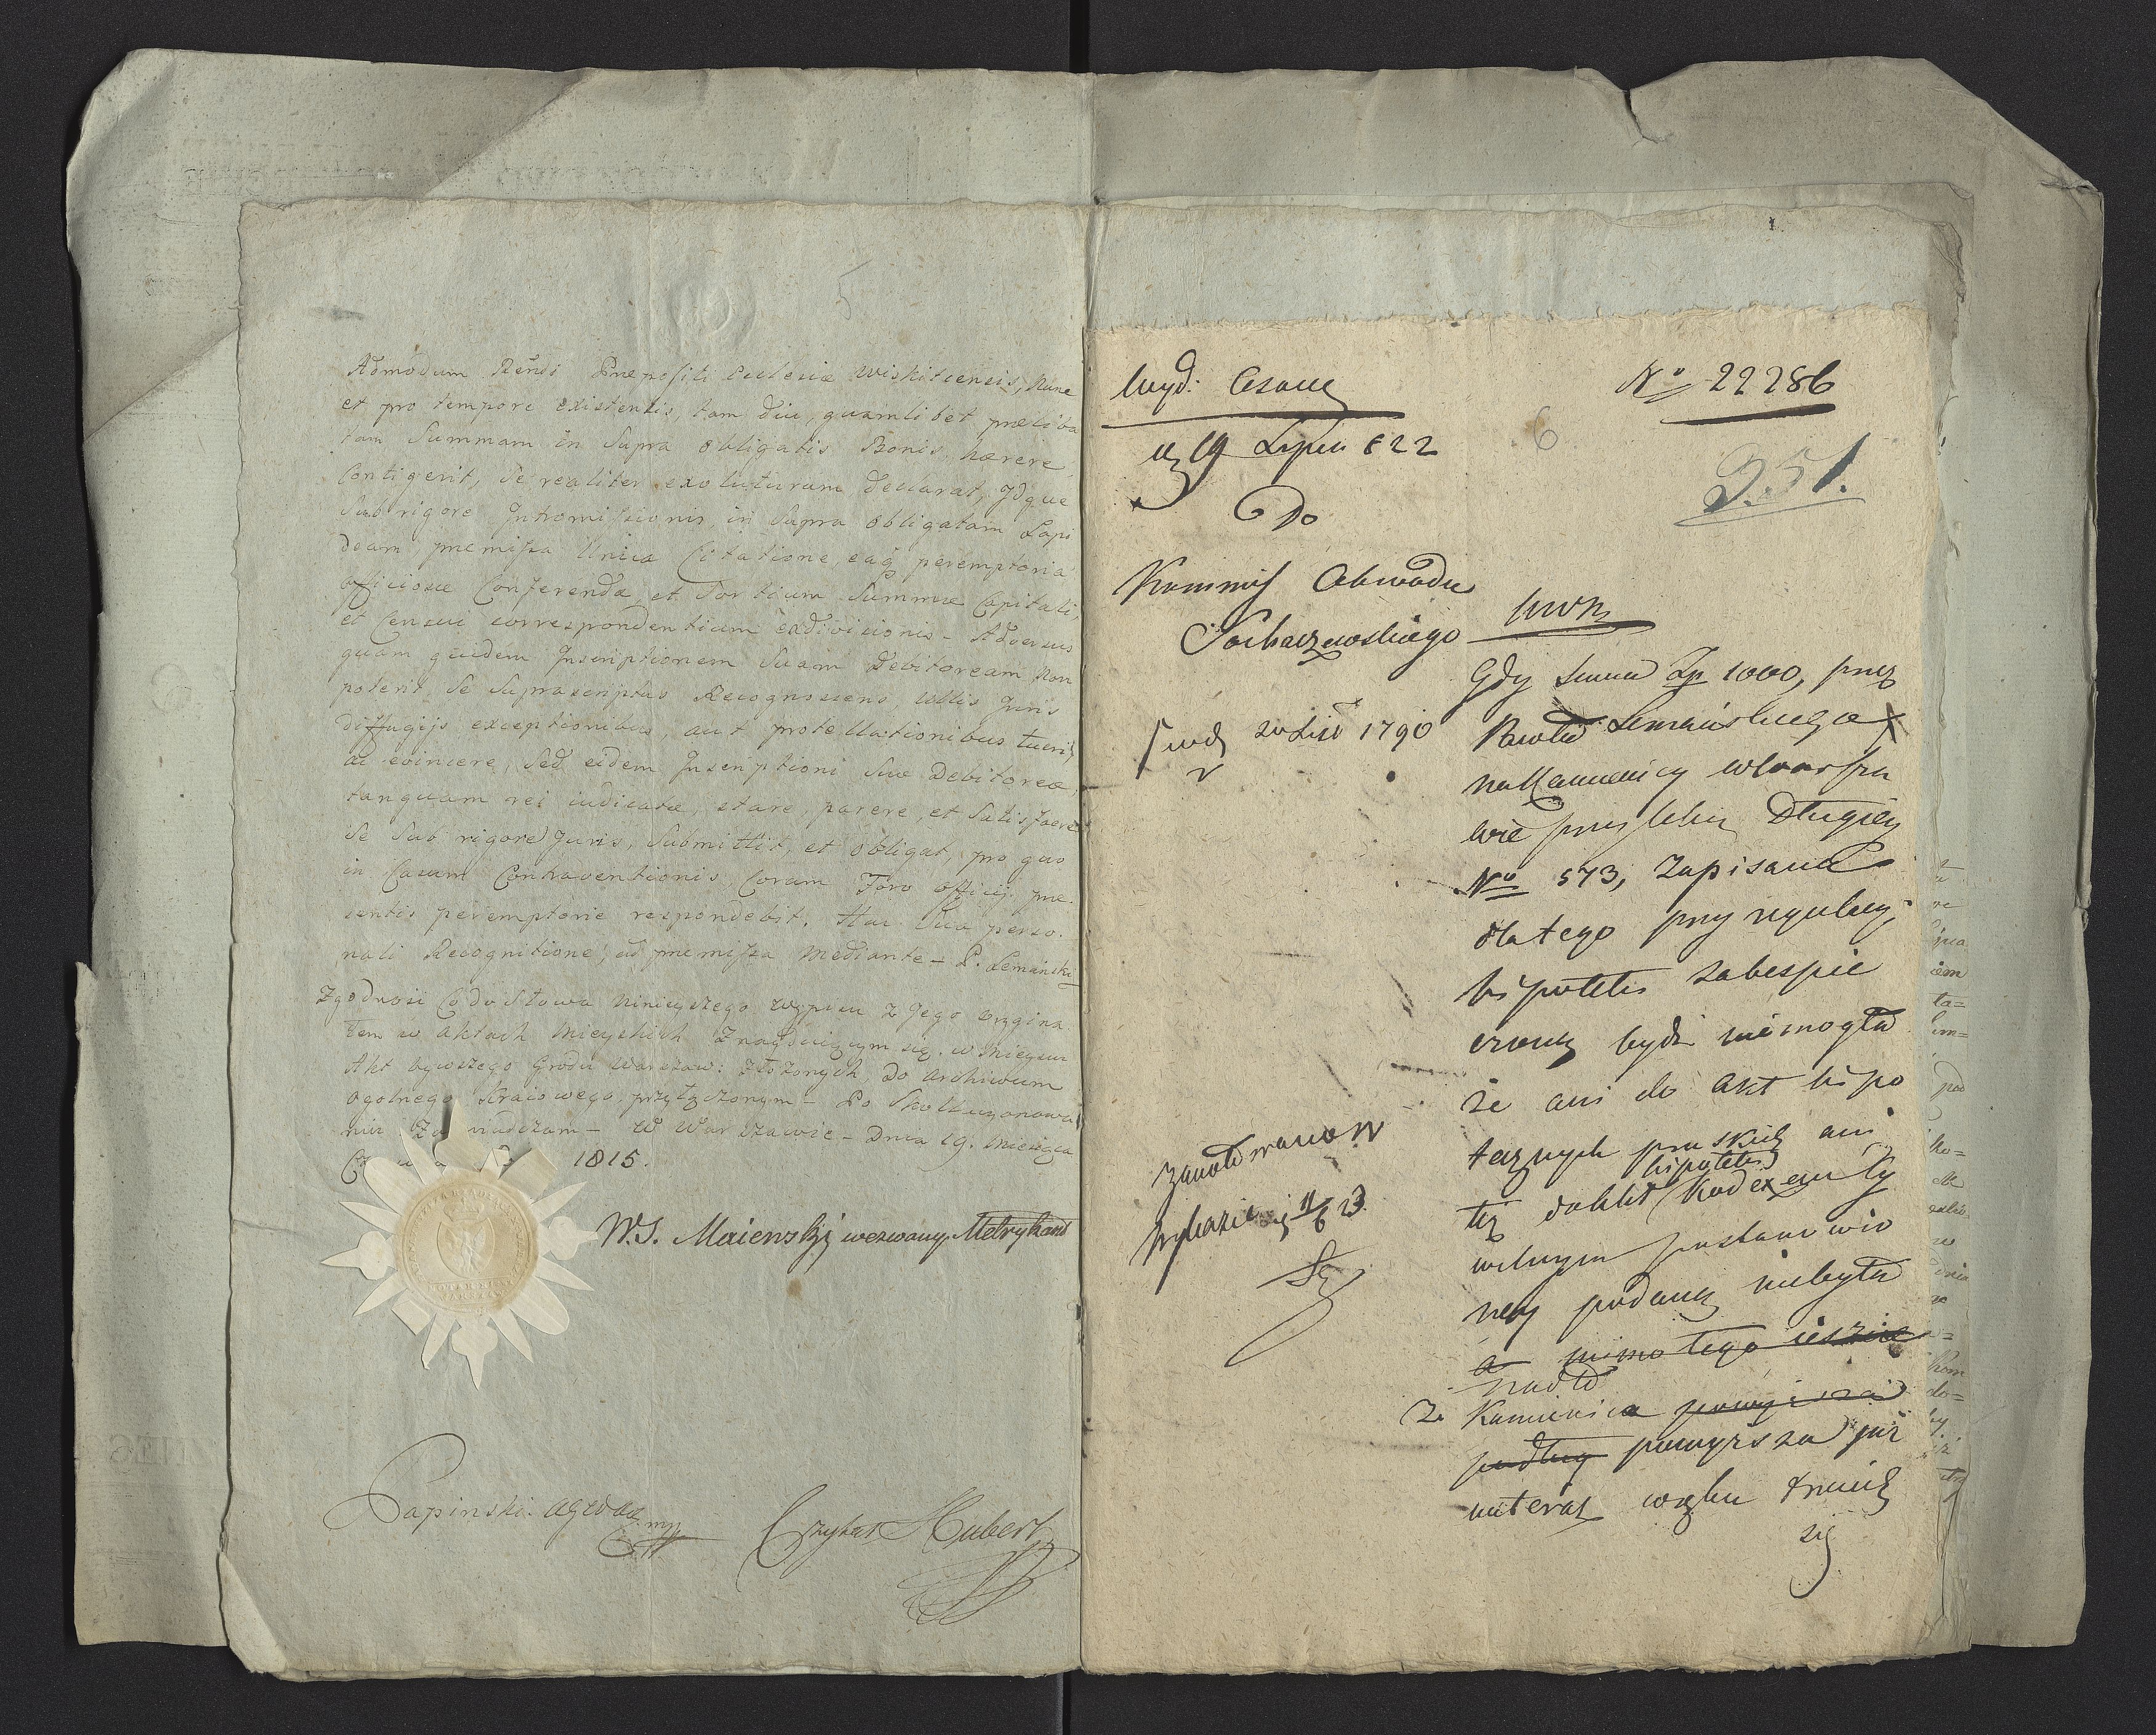 5
Admodum Rendi Præpositi Ecclesiæ Wiskitcensis, Nunc
et pro tempore existentis, tam diu, quamlibet præliba
tam Summam in Supra Obligatis Bonis hærere
Contigerit, Se realiter exoluturum declarat, Idque
Sub rigore Intromissionis in Supra obligatam Lapi
deam, præmissa Unica Citatione, eaq peremptoria
officiose Conferenda, et Sortium Summæ Capitali,
et Censui correspondentium exdivisionis - Adversus
quam quidem Inscriptionem Suam Debitoream Non
poterit, Se Suprascriptus Recognoscens, ullis Juris
diffugijs exceptionibus, aut protestationibus tueri,
ac evincere, Sed eidem Inscriptioni Suæ Debitoreæ,
tanquam rei iudicatæ, stare parere, et Satisfacere
Se Sub rigore Juris, Submittit, et obligat, pro quo
in Casum Contraventionis Coram Foro officij præ
sentis peremptorie respondebit. Hac Sua perso
nali Recognitione, ad præmissa mediante - P. Lemański
Zgodność Co do Słowa Ninieyszego wypisu z Jego orygina
łem w aktach Mieyskich Znayduiącym się, w Mieyscu
Akt bywszego Grodu Warszaw: złożonych, do Archiwum
ogolnego Kraiowego przyłączonym - Po Skollacyonowa
niu Za - W Warszawie - Dnia 19. Miesiąca
1815.
W. S. Maiewski wezwany Metrykant
Lapinski
Hubert
Wyd: Czaue
No 22286
19 Lipca 822
6
351.
Do
Kommiss Obwodu
Sochaczewskiego
WWR
Gdy Summa Zp 1000, przez
1790
Pawła Lemańskiego
na Kamienicy w Warsza
wie przy Ulicy Długiey
No 573, Zapisana
dla tego przy regulacyi
hipoteki zabespie
czoną bydź niemogła
że ani do Akt hipo
tecznych pruskich ani
hipoteki
też do Akt Kodexem Cy
wilnym postanowio
ney podaną niebyła
a mimo tego ieszcze
nadto
Ze Kamienica powyższa
podług powyższa już
nateraz w ręku trzeciej
się
Zanotowano w
Wykazie 11/6 23